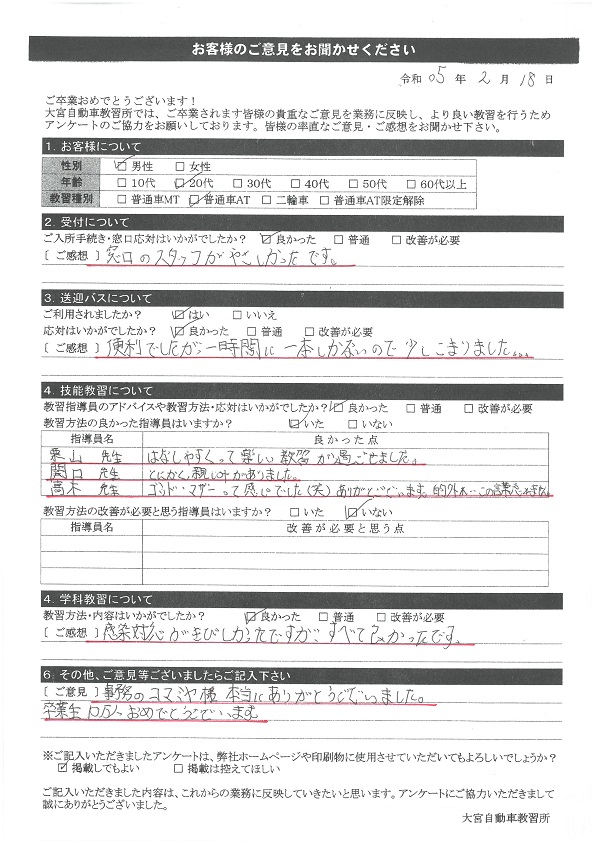 お客様のご意見をお聞かせください
令和 05 年 2 月 18 日
ご卒業おめでとうございます！
大宮自動車教習所では、ご卒業されます皆様の貴重なご意見を業務に反映し、より良い教習を行うため
アンケートのご協力をお願いしております。皆様の率直なご意見・ご感想をお聞かせ下さい。
1. お客様について
性別 ☑男性 □女性
年齢 □10代 ☑20代 □30代 □40代 □50代 □60代以上
教習種別 □普通車MT ☑普通車AT □二輪車 □普通車AT限定解除
2. 受付について
ご入所手続き・窓口応対はいかがでしたか？ ☑良かった □普通 □改善が必要
[ ご感想 ] 窓口のスタッフがやさしかったです。
3. 送迎バスについて
ご利用されましたか？ ☑はい □いいえ
応対はいかがでしたか？ ☑良かった □普通 □改善が必要
[ ご感想 ] 便利でしたが、一時間に一本しかないので少しこまりました。。。
4. 技能教習について
教習指導員のアドバイスや教習方法・応対はいかがでしたか？ ☑良かった □普通 □改善が必要
教習方法の良かった指導員はいますか？ ☑いた □いない
指導員名 良かった点
栗山 先生 はなしやすくって楽しい教習が過ごせました。
関口 先生 とにかく、親しみがありました。
高木 先生 ゴッド・マザーって感じでした(笑) ありがとうございます。的外れ…この言葉忘れません
教習方法の改善が必要と思う指導員はいますか？ □いた ☑いない
指導員名 改善が必要と思う点
4. 学科教習について
教習方法・内容はいかがでしたか？ ☑良かった □普通 □改善が必要
[ ご感想 ] 感染対応がきびしかったですが、すべて良かったです。
6. その他、ご意見等ございましたらご記入下さい
[ ご意見 ] 事務のコマミヤ様 本当にありがとうございました。
卒業生10万人おめでとうございます
※ご記入いただきましたアンケートは、弊社ホームページや印刷物に使用させていただいてもよろしいでしょうか？
☑掲載してもよい □掲載は控えてほしい
ご記入いただきました内容は、これからの業務に反映していきたいと思います。アンケートにご協力いただきまして
誠にありがとうございました。
大宮自動車教習所